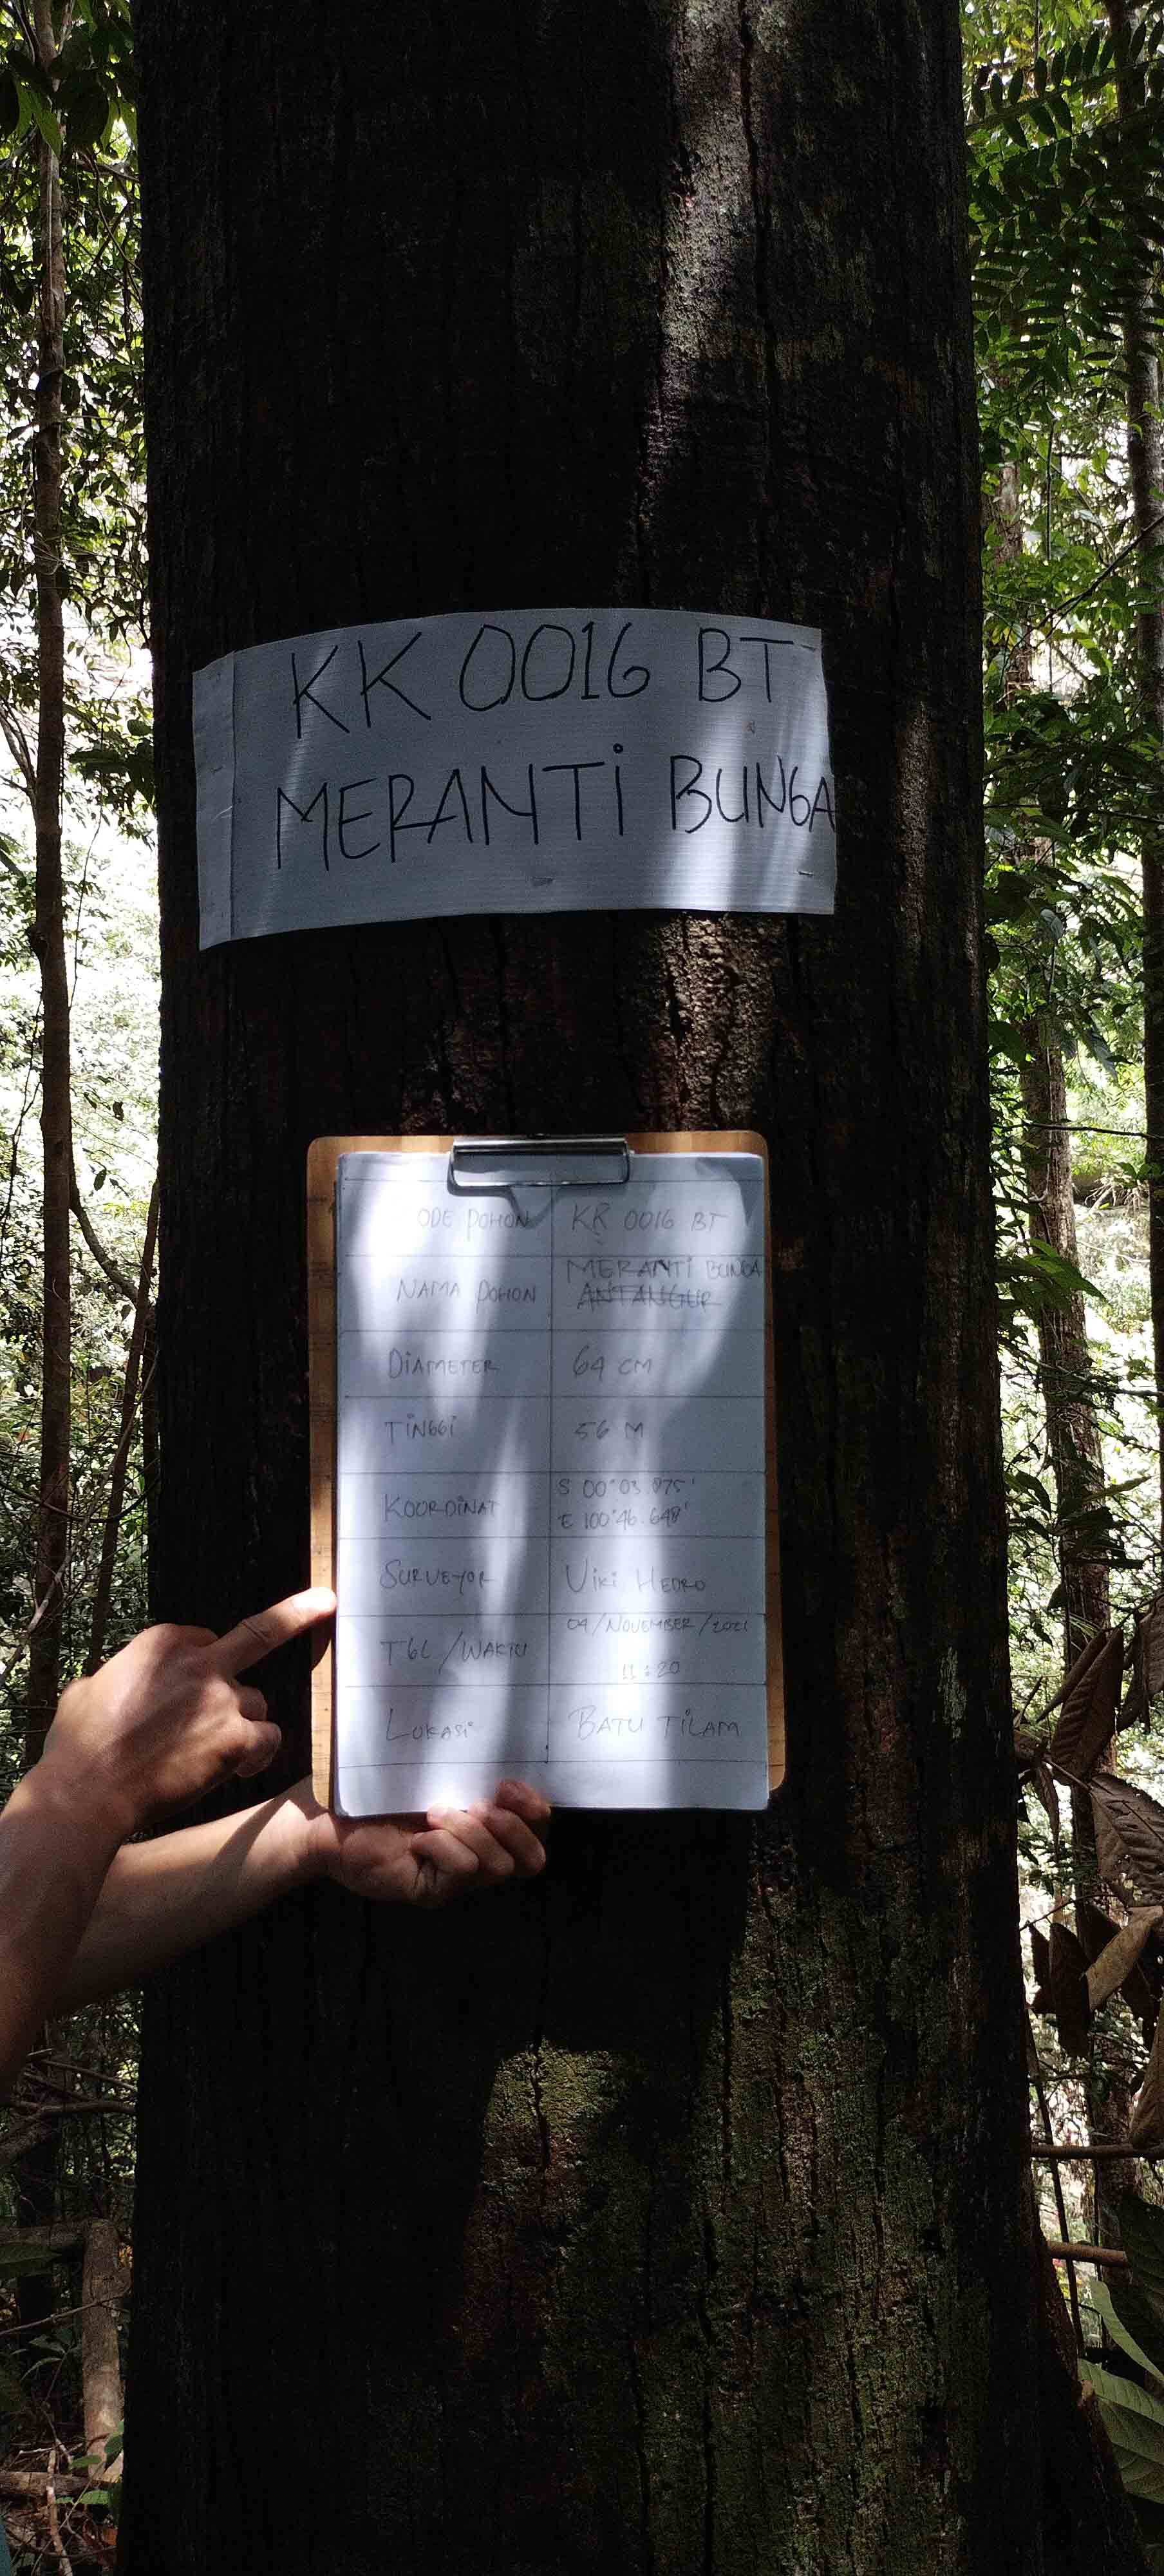 KK 0016 BT
MERANTi BUNGA
ODE POHON KK 0016 BT
NAMA POHON MERANTi BUNGA
ANTANGUR
DiAMETER 64 CM
TiNGGi 56 M
KOORDiNAT S 00°03.075'
E 100°46.648'
SURVEYOR Viki HEDRO
TGL/WAKTU 04/NOVEMBER/2021
11:20
LOKASi BATU TiLAM